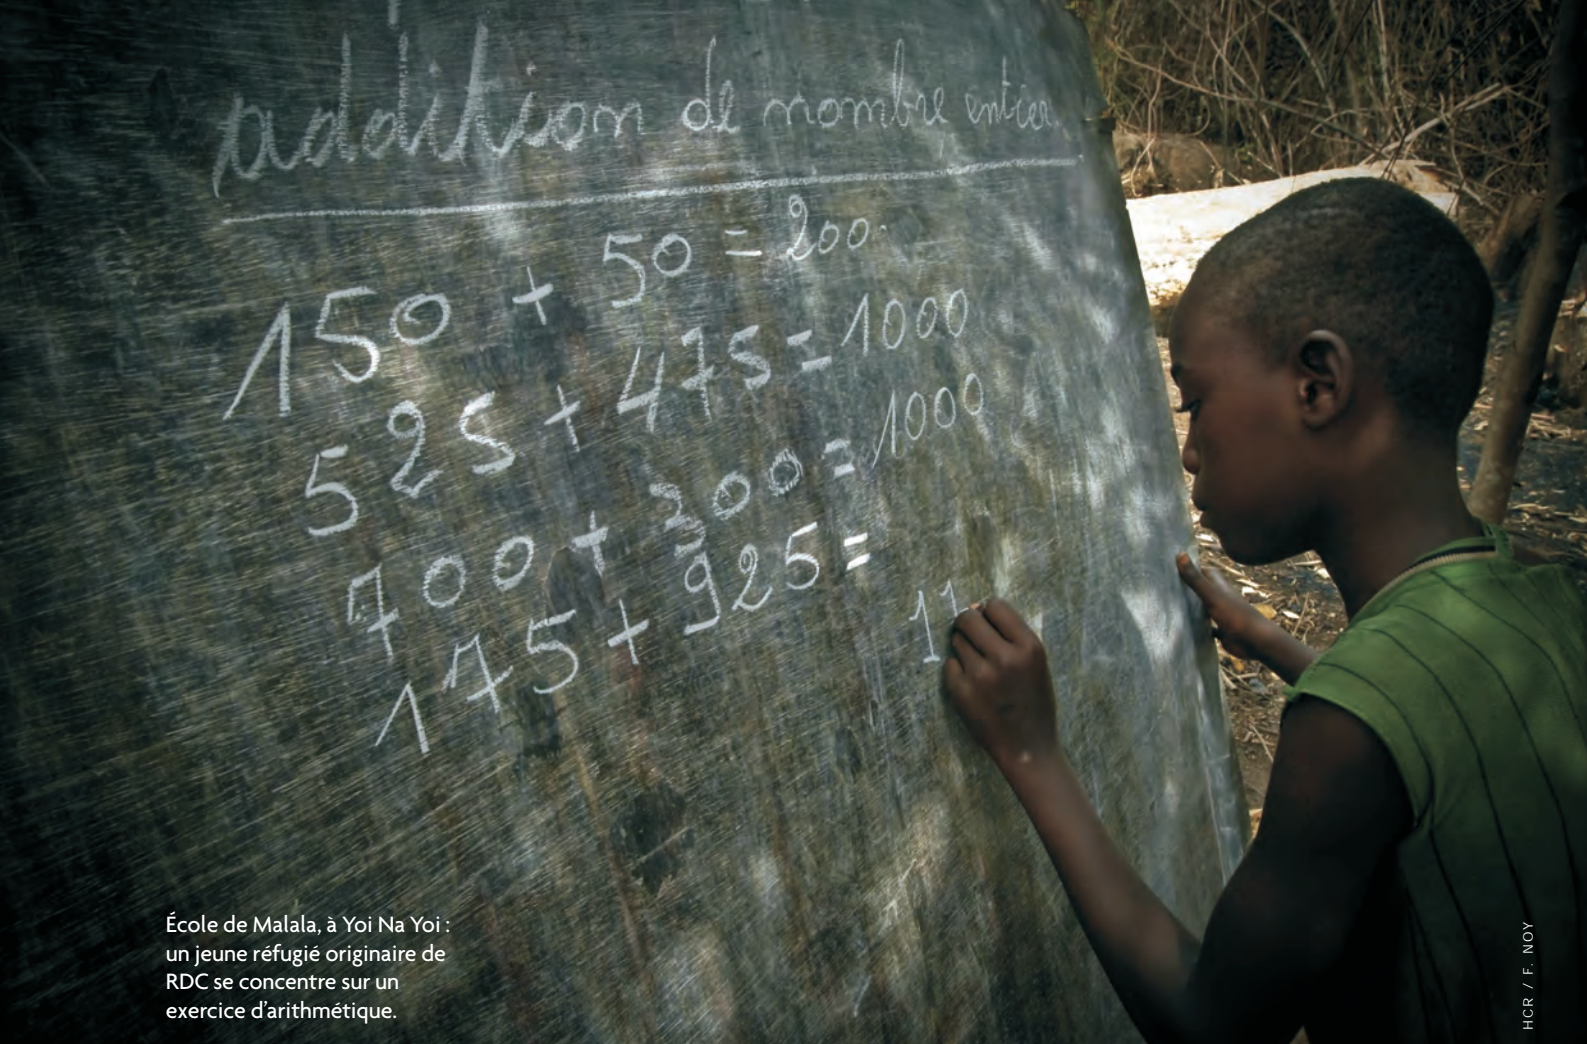 addition de nombre entier
150 + 50 = 200
525 + 475 = 1000
700 + 300 = 1000
175 + 925 =
11
École de Malala, à Yoi Na Yoi :
un jeune réfugié originaire de
RDC se concentre sur un
exercice d’arithmétique.
HCR / F. NOY